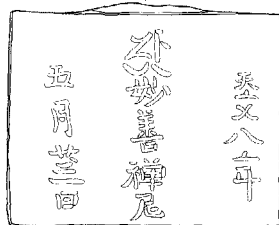 天文八年
妙善禅尼
五月廿日